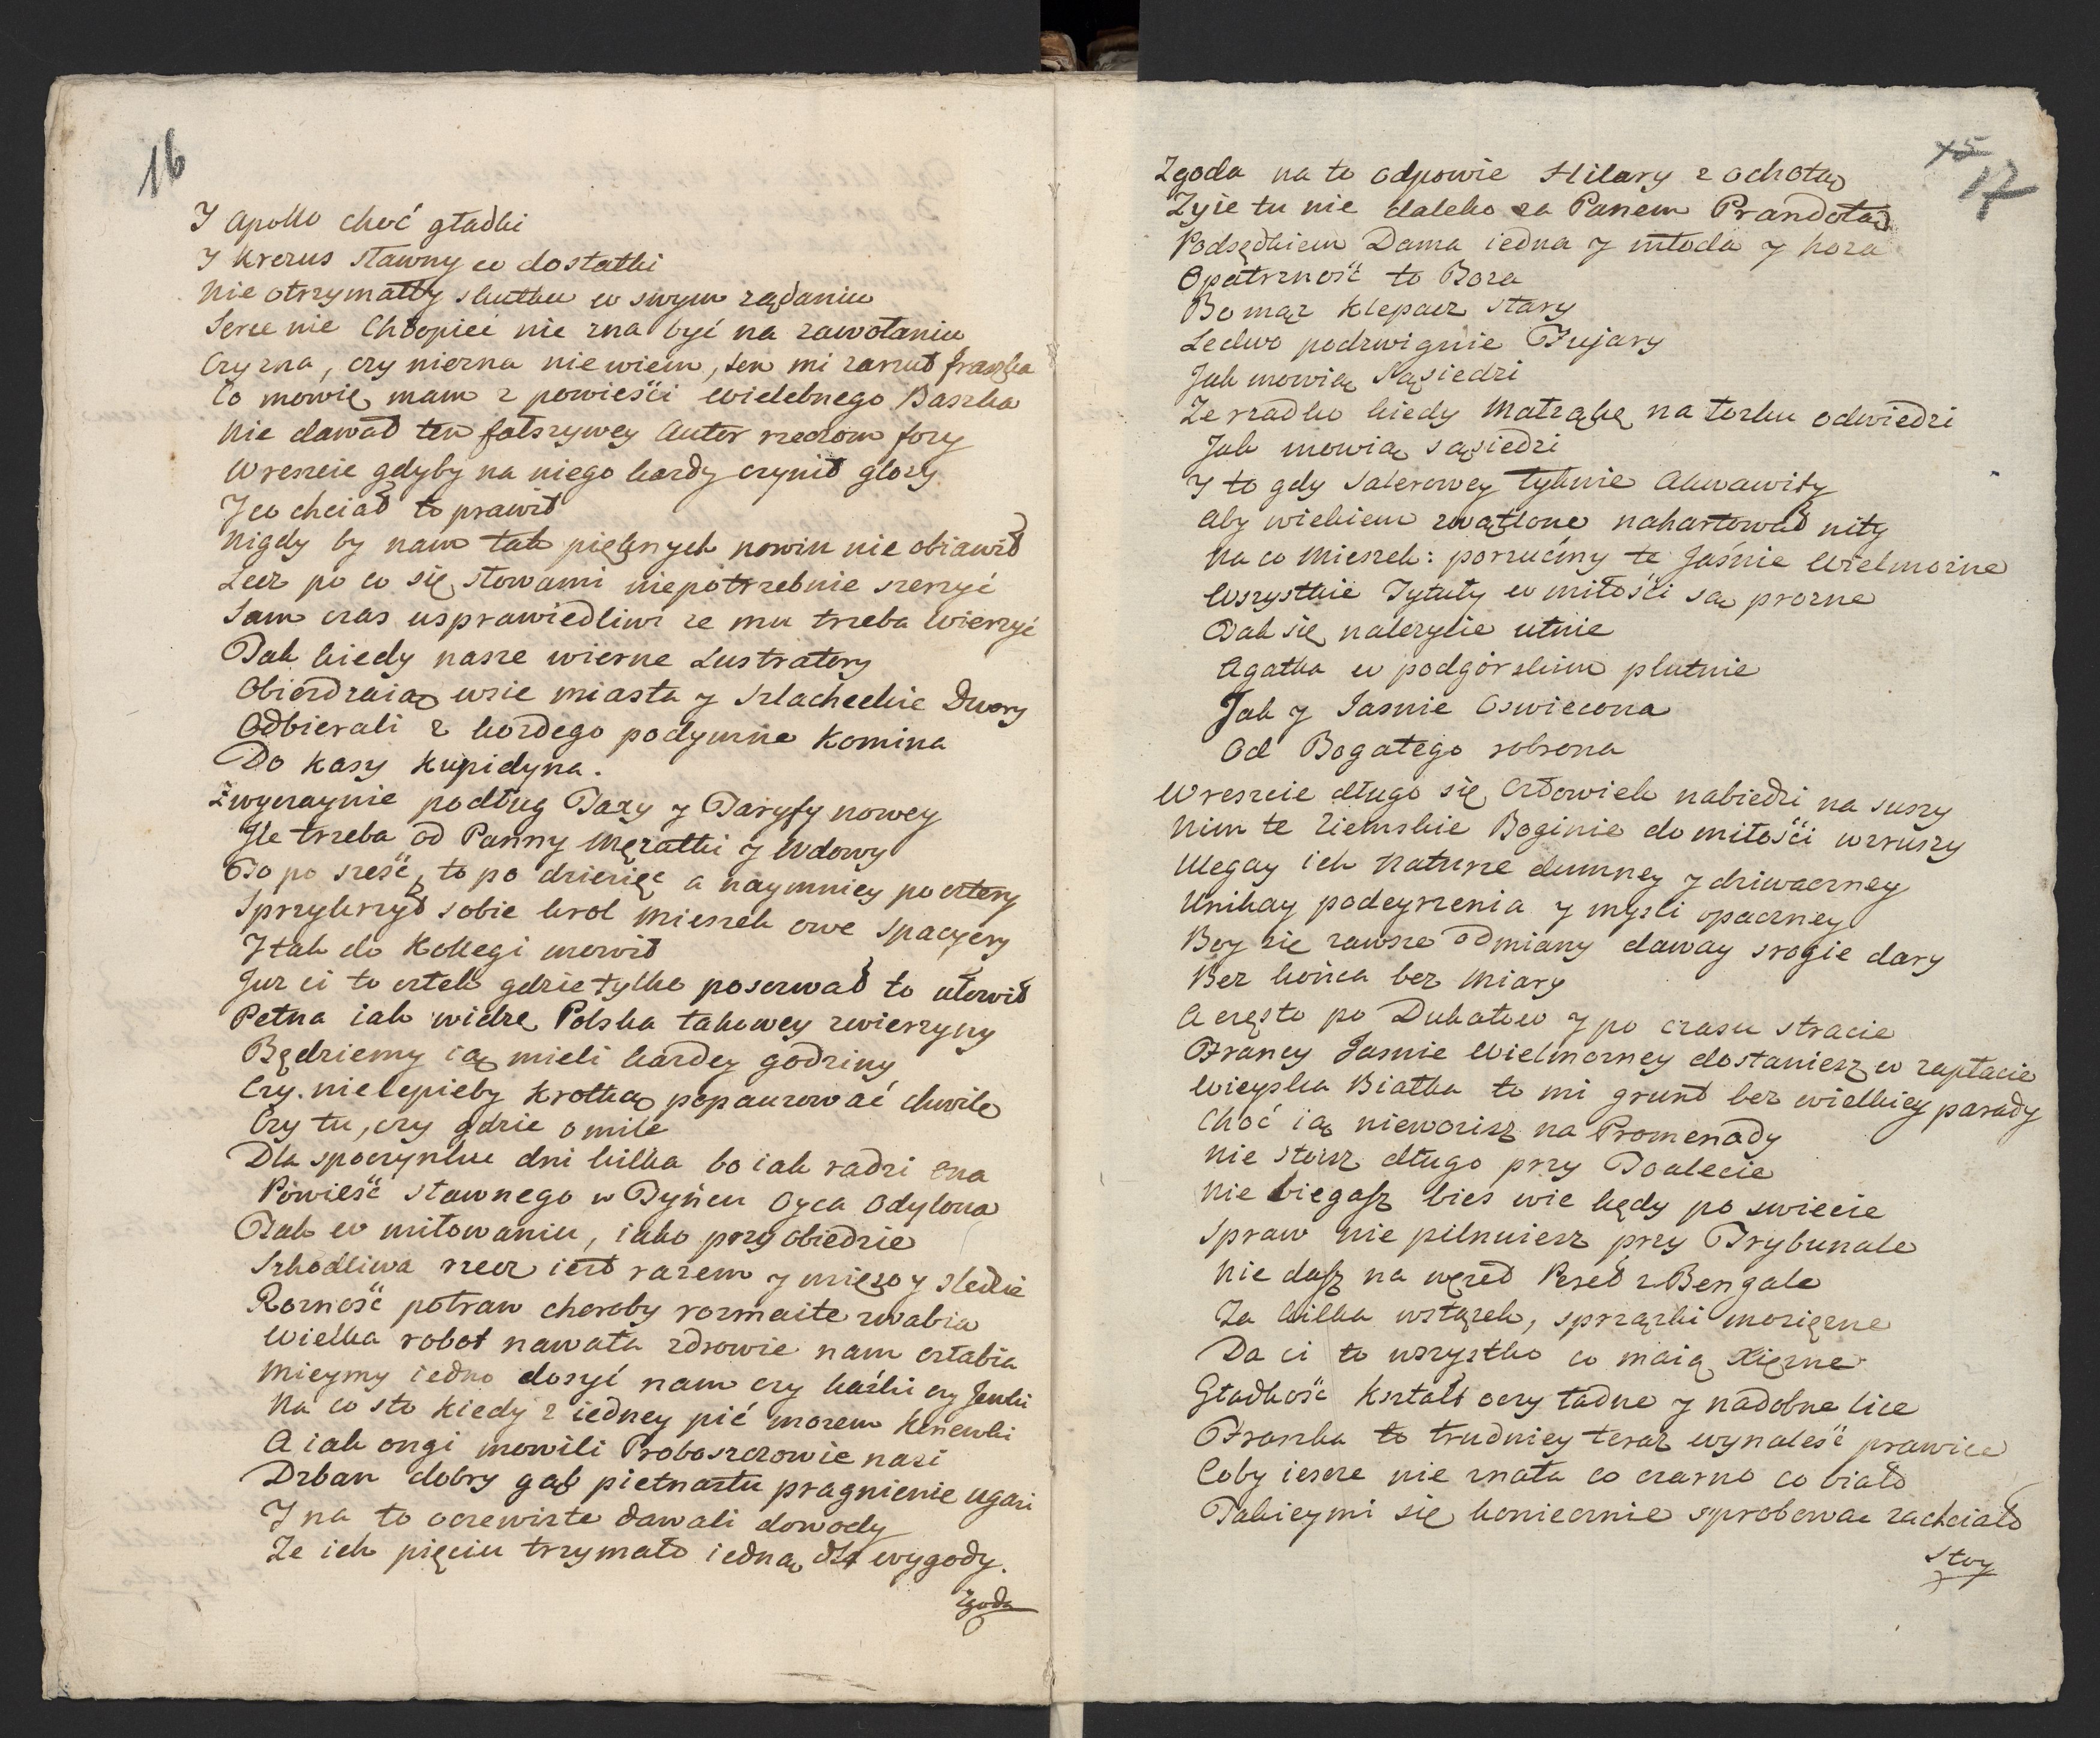 16
Y Apollo choć gładki
Y Krezus sławny w dostatki
Nie otrzymałby skutku w swym rządaniu
Serce nie Chłopiec nie zna być na zawołaniu
Czy zna, czy niezna nie wiem, ten mi zarzut fraszka
Co mowię mam z powieści Wielebnego Baszka
Nie dawał ten fałszywey Autor rzeczom fozy
Wreszcie gdyby na niego kazdy czynił glozy
Y co chciał to prawił
Nigdy by nam tak pięknych nowin nie obiawił
Lecz po co się słowami niepotrzebnie szerzyć
Sam czas usprawiedliwi ze mu trzeba wierzyć
Tak kiedy nasze wierne Lustratory
Obiezdzaiąc wsie miasta y Szlacheckie Dwory
Odbierali z kozdego podymne Komina
Do Kasy Kupidyna.
Zwyczaynie podług Taxy y Taryfy nowey
Ile trzeba od Panny Męzatki y Wdowy
To po sześć, to po dziesięć a naymniey po cztery
Sprzykrzył sobie krol Mieszek owe spacyery
Y tak do Kollegi mowił
Juz ci to człek gdzie tylko poserwał to ułowił
Pełna iak widzę Polska takowey zwierzyny
Będziemy ią mieli kazdey godziny
Czy nielepieby krotką popauzować chwilę
Czy tu, czy gdzie o mile
Dla spoczynku dni kilka bo iak radzi ona
Powieść sławnego w Tyńcu Oyca Odylona
Tak w miłowaniu, iako przy obiedzie
Szkodliwa rzecz iest razem y mięso y sledzie
Rozność potraw choroby rozmaite zwabia
Wielka robot nawała zdrowie nam osłabia
Mieymy iedno dosyć nam czy Kaśki czy Jewki
Na co sto kiedy z iedney pić mozem Konewki
A iak ongi mowili Proboszczowie nasi
Dzban dobry gąb pietnastu pragnienie ugasi
Y na to oczewiste dawali dowody
Ze ich pięciu trzymało iedną dla wygody.
Zgoda
15
17
Zgoda na to odpowie Hilary z ochotą
Zyie tu nie daleko za Panem Prandotą
Podsędkiem Dama iedna y młoda y hoza
Opatrzność to Boza
Bo mąz Klepacz stary
Ledwo podzwignie Fujary
Jak mowią Sąsiedzi
Ze rzadko kiedy Matrąkę na łozku odwiedzi
Jak mowią sąsiedzi
Y to gdy Salerowey łyknie Akwawity
Aby wiekiem zwątlone nahartował nity
Na co Mieszek: porzućmy te Jaśnie Wielmozne
Wszystkie Tytuły w miłości są prozne
Tak się nalezycie utnie
Agatka w podgórskim płutnie
Jak y Jasnie Oswiecona
Od Bogatego robrona
Wreszcie długo się Człowiek nabiedzi na suszy
Nim te Ziemskie Boginie do miłości wzruszy
Ulegay ich Naturze dumney y dziwaczney
Unikay podeyrzenia y mysli opaczney
Boy się zawsze odmiany daway srogie dary
Bez końca bez Miary
A często po Dukatow y po czasu stracie
Francy Jasnie Wielmozney dostaniesz w zapłacie
Wieyska Białka to mi grunt bez wielkiey parady
Choć ią niewozisz na Promenady
Nie stoisz długo przy Toalecie
Nie biegasz bies wie kędy po swiecie
Spraw nie pilnuiesz przy Trybunale
Nie dasz na węzeł Pereł z Bengale
Za kilka wstązek, sprzązki mosięzne
Da ci to wszystko co maią Xięzne
Gładkość Kształt oczy ładne y nadobne lice
Fraszka to trudniey teraz wynaleść prawice
Coby iesce nie znała co czarno co biało
Takieymi się koniecznie sprobować zachciało
Stoy